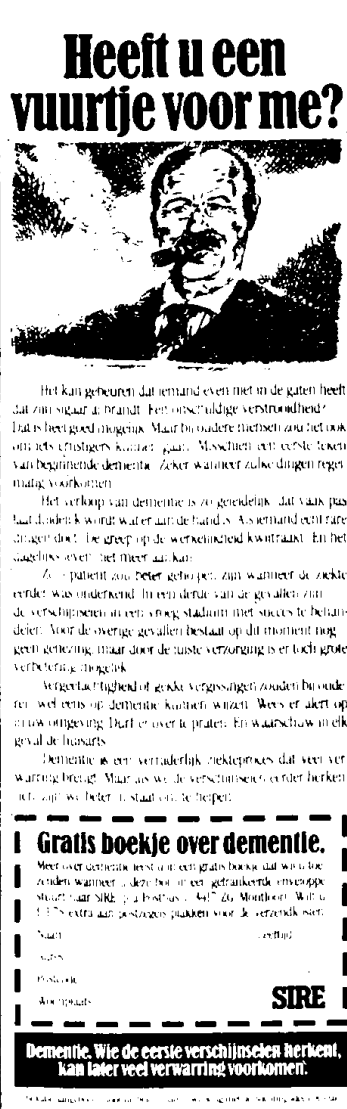 Heeft u een
vuurtje voor me?
Het kan gebeuren dat iemand even niet in de gaten heeft
dat zijn sigaar al brandt. Een onschuldige verstrooidheid?
Dat is heel goed mogelijk. Maar bij oudere mensen zou het ook
om iets ernstigers kunnen gaan. Misschien een eerste teken
van beginnende dementie. Zeker wanneer zulke dingen regel-
matig voorkomen.
Het verloop van dementie is zo geleidelijk, dat vaak pas
laat duidelijk wordt wat er aan de hand is. Als iemand echt rare
dingen doet. De greep op de werkelijkheid kwijtraakt. En het
dagelijks leven niet meer aan kan.
Zo'n patiënt zou beter geholpen zijn wanneer de ziekte
eerder was onderkend. In een derde van de gevallen zijn
de verschijnselen in een vroeg stadium met succes te behan-
delen. Voor de overige gevallen bestaat op dit moment nog
geen genezing, maar door de juiste verzorging is er toch grote
verbetering mogelijk.
Vergeetachtigheid of gekke vergissingen zouden bij oude-
ren wel eens op dementie kunnen wijzen. Wees er alert op
in uw omgeving. Durf er over te praten. En waarschuw in elk
geval de huisarts.
Dementie is een verraderlijk ziekteproces dat veel ver-
warring brengt. Maar als we de verschijnselen eerder herken-
nen, zijn we beter in staat om te helpen.
Gratis boekje over dementie.
Meer over dementie leest u in een gratis boekje dat wij u toe-
zenden wanneer u deze bon in een gefrankeerde enveloppe
stuurt naar SIRE, Postbus 3417 ZG Montfoort. Wilt u
extra aan postzegels plakken voor de verzendkosten
Naam Leeftijd
Adres
Postcode
Woonplaats
SIRE
Dementie. Wie de eerste verschijnselen herkent,
kan later veel verwarring voorkomen.